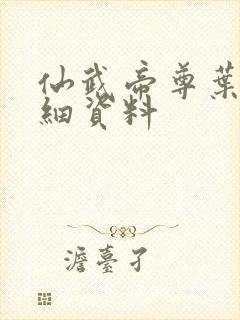 仙武帝尊葉
細資料
澹臺孑